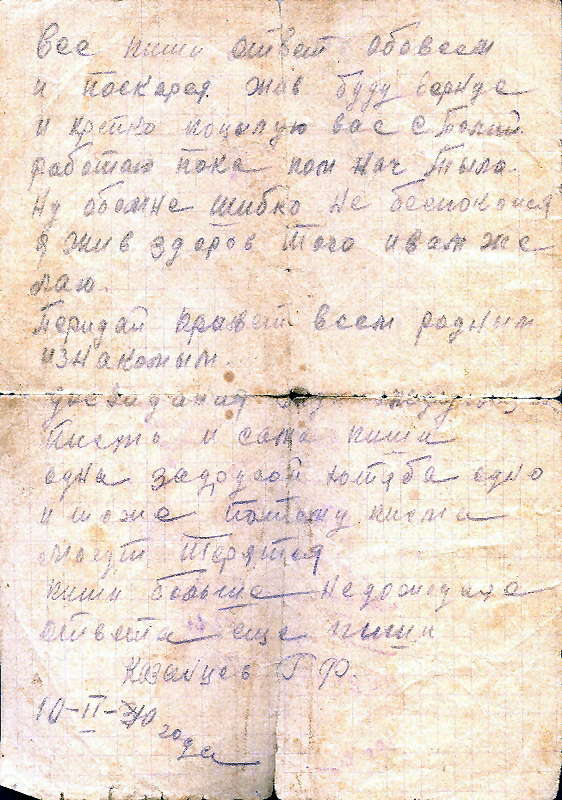 Все пиши ответ обовсем
и поскарея жив буду вернус
и крепко поцолую вас стобой
работаю пока пом нач тыла.
Ну обомне шибко не беспокойся
я жив здоров того и вам же
лаю.
Перидай привет всем родным
изнакомым.
досвидания
Писмо и сама пиши
одна задругой хотябы одно
и тоже потому писма
могут терятся
пиши больше недожидая
ответа еще пиши
Казанцев Г Ф.
10-II-
года